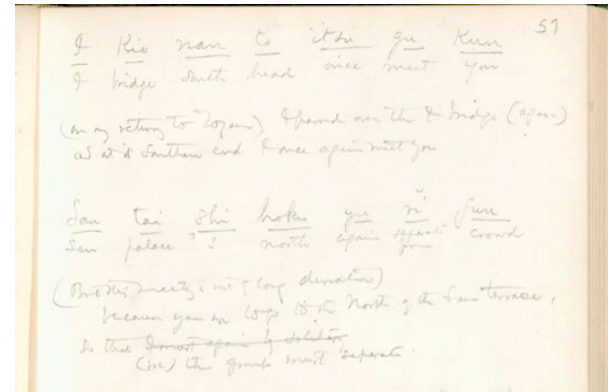 57
I Kio nan to itsu gu Kun
I bridge south head once meet you
(on my return to ) I passed over the I bridge (again)
at its Southern end I once again meet you
San tai shi hoku yu ri gun
San palace 's north again separate from crowd
(But this meeting is not of long duration)
because you are to go to the North of the San terrace,
so that I must again by
(we) the group must separate.